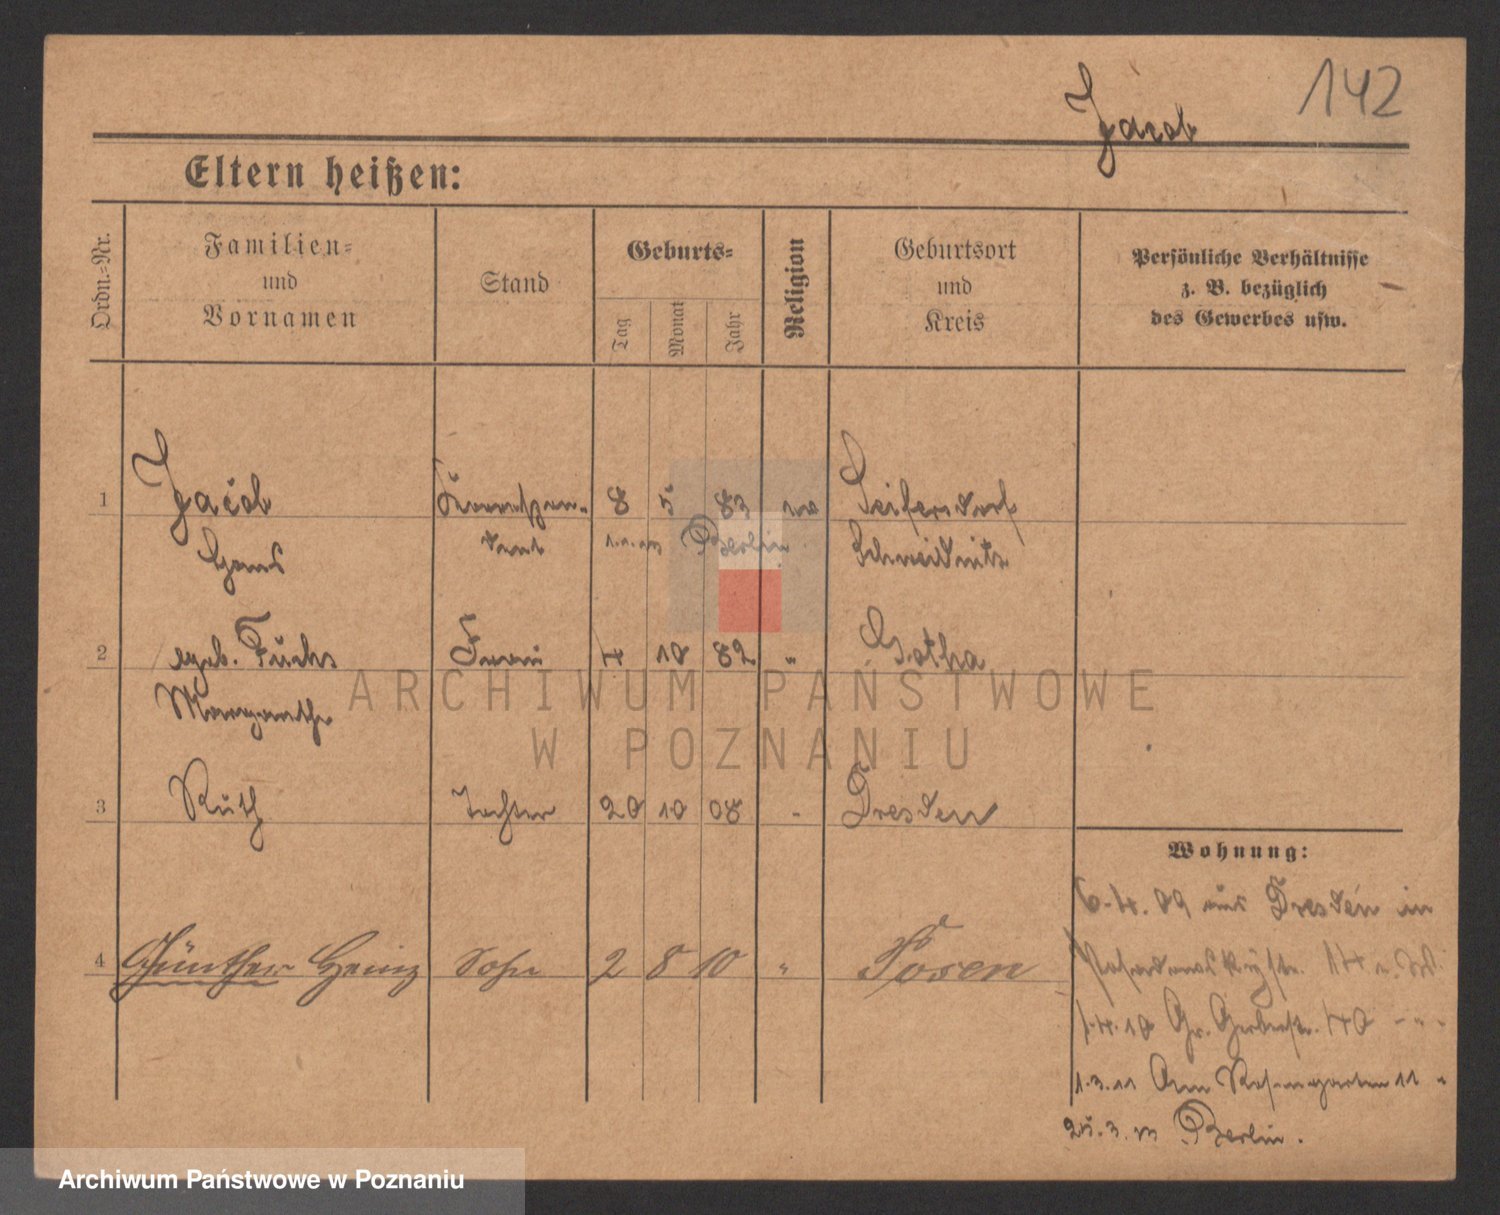 142
Jacob
Eltern heißen:
Ordn.=Nr.
Familien=
und
Vornamen
Stand
Geburts=
Tag
Monat
Jahr
Religion
Geburtsort
und
Kreis
Persönliche Verhältnisse
z. B. bezüglich
des Gewerbes usw.
1 Jacob 8 5 83 Seifersdorf
Hans Berlin Schweidnitz
2 geb. Fuchs Frau 4 10 82 " Gotha
Margarethe
3 Ruth Tochter 20 10 08 - Dresden
4 Günther Heinz Sohn 2 8 10 " Posen
Wohnung:
6.4.09 aus Dresden in
14
1.4.10 Gr. Gerberstr. 40 - " -
1.3.11 Am Rosengarten 11 "
25.3.13 Berlin.
ARCHIWUM PAŃSTWOWE
W POZNANIU
Archiwum Państwowe w Poznaniu